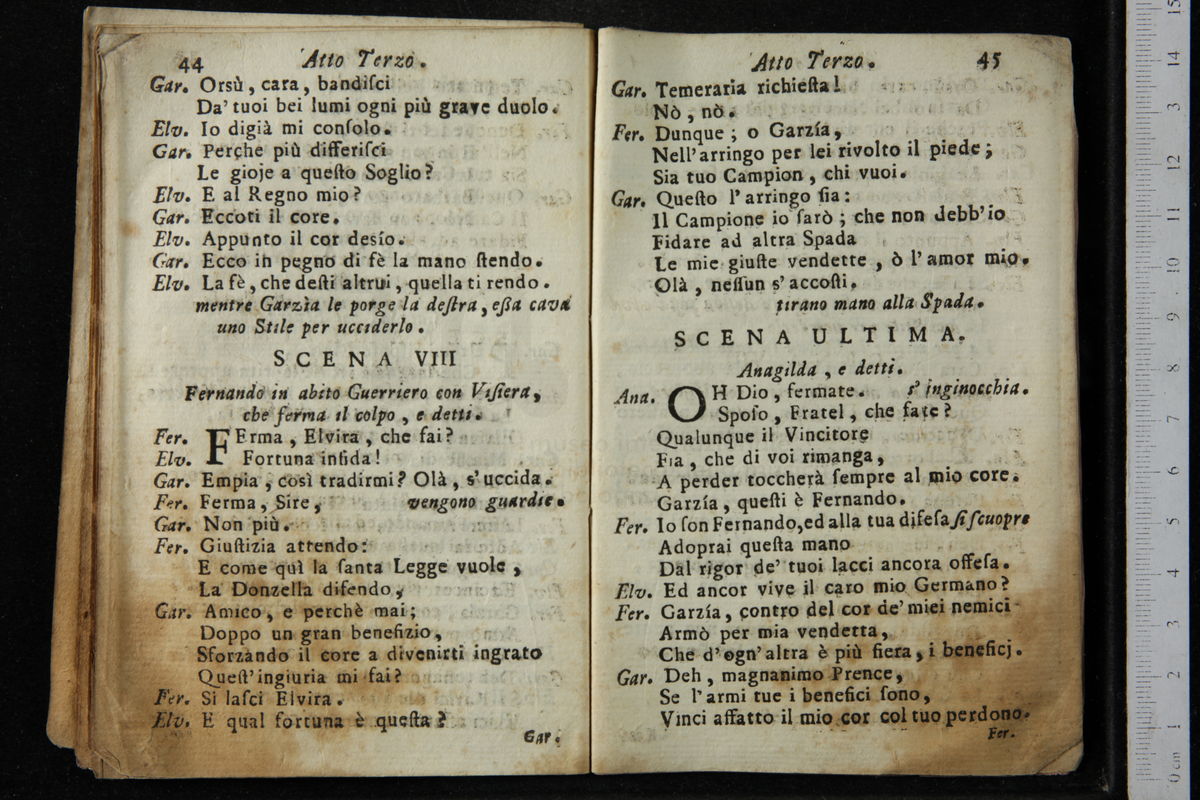 44 Atto Terzo.
Gar. Orsù, cara, bandiſci
Da' tuoi bei lumi ogni più grave duolo.
Elv. Io digià mi conſolo.
Gar. Perche più differiſci
Le gioje a queſto Soglio?
Elv. E al Regno mio?
Gar. Eccoti il core.
Elv. Appunto il cor desío.
Gar. Ecco in pegno di fè la mano ſtendo.
Elv. La fè, che deſti altrui, quella ti rendo.
mentre Garzìa le porge la deſtra, eßa cava
uno Stile per ucciderlo.
SCENA VIII
Fernando in abito Guerriero con Viſiera,
che ferma il colpo, e detti.
Fer. FErma, Elvira, che fai?
Elv. Fortuna infida!
Gar. Empia, così tradirmi? Olà, s'uccida.
Fer. Ferma, Sire, vengono guardie.
Gar. Non più.
Fer. Giuſtizia attendo:
E come quì la ſanta Legge vuole,
La Donzella difendo,
Gar. Amico, e perchè mai;
Doppo un gran benefizio,
Sforzando il core a divenirti ingrato
Queſt'ingiuria mi fai?
Fer. Si laſci Elvira.
Elv. E qual fortuna è queſta?
Gar.
Atto Terzo. 45
Gar. Temeraria richieſta!
Nò, nò.
Fer. Dunque; o Garzía,
Nell'arringo per lei rivolto il piede;
Sia tuo Campion, chi vuoi.
Gar. Queſto l'arringo ſia:
Il Campione io ſarò; che non debb'io
Fidare ad altra Spada
Le mie giuſte vendette, ò l'amor mio.
Olà, neſſun s'accoſti.
tirano mano alla Spada.
SCENA ULTIMA.
Anagilda, e detti.
Ana. OH Dio, fermate. s'inginocchia.
Spoſo, Fratel, che fate?
Qualunque il Vincitore
Fia, che di voi rimanga,
A perder toccherà ſempre al mio core.
Garzía, queſti è Fernando.
Fer. Io ſon Fernando,ed alla tua difeſa ſi ſcuopre
Adoprai queſta mano
Dal rigor de' tuoi lacci ancora offeſa.
Elv. Ed ancor vive il caro mio Germano?
Fer. Garzía, contro del cor de' miei nemici
Armò per mia vendetta,
Che d'ogn'altra è più fiera, i beneficj.
Gar. Deh, magnanimo Prence,
Se l'armi tue i benefici ſono,
Vinci affatto il mio cor col tuo perdono.
Fer.